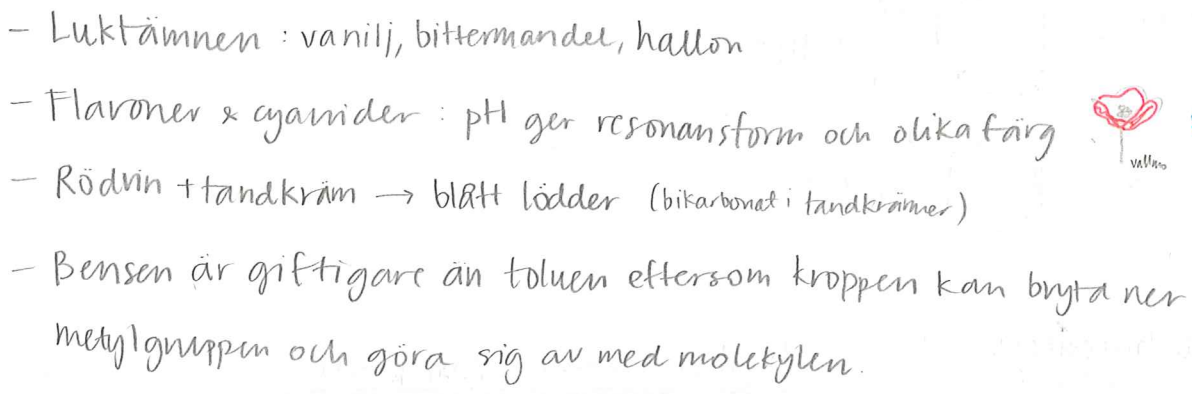 - Luktämnen : vanilj, bittermandel, hallon
- Flavoner & cyanider : pH ger resonansform och olika färg
vallmo
- Rödvin + tandkräm → blått lödder (bikarbonat i tandkrämer)
- Bensen är giftigare än toluen eftersom kroppen kan bryta ner
metylgruppen och göra sig av med molekylen.